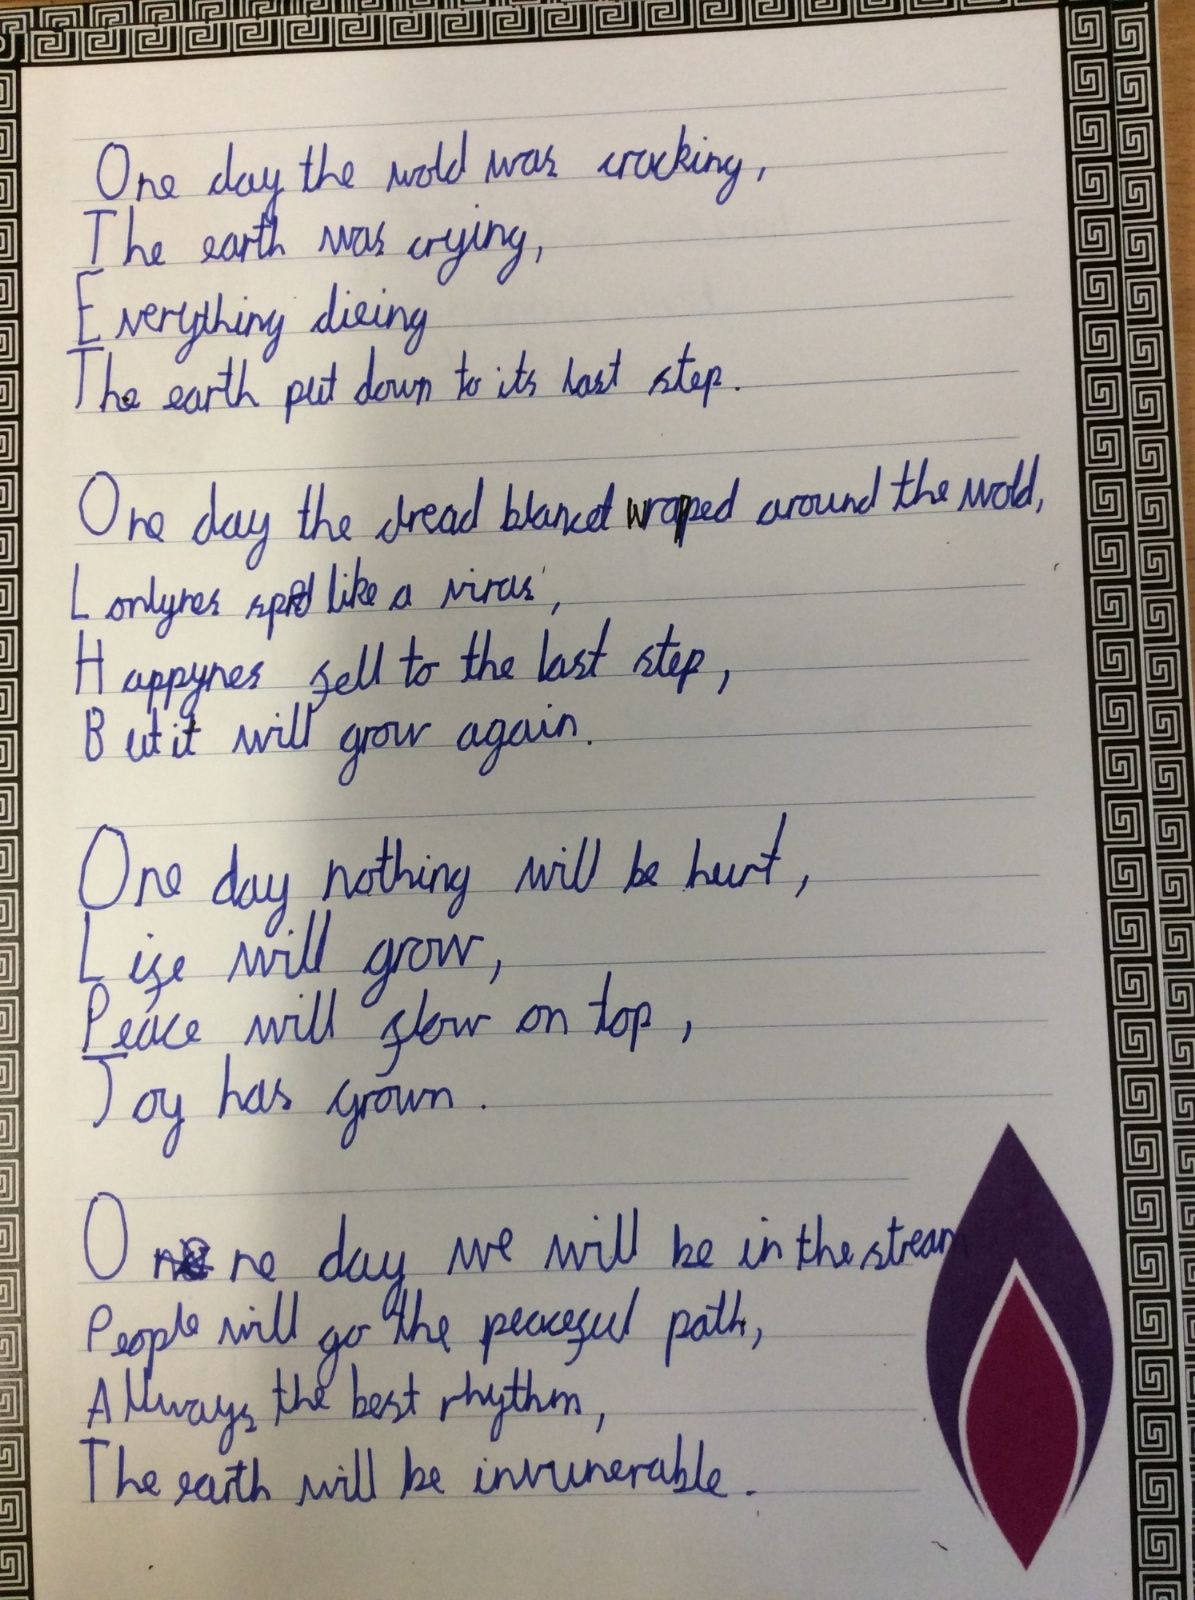 One day the wold was cracking,
The earth was crying,
Everything dieing
The earth put down to its last step.
One day the dread blancet wraped around the wold,
Lonlynes spred like a viras,
Happynes fell to the last step,
But it will grow again.
One day nothing will be hurt,
Life will grow,
Peace will flow on top,
Joy has grown.
One day we will be in the stream
People will go the peaceful path,
Allways the best rhythm,
The earth will be invunerable.